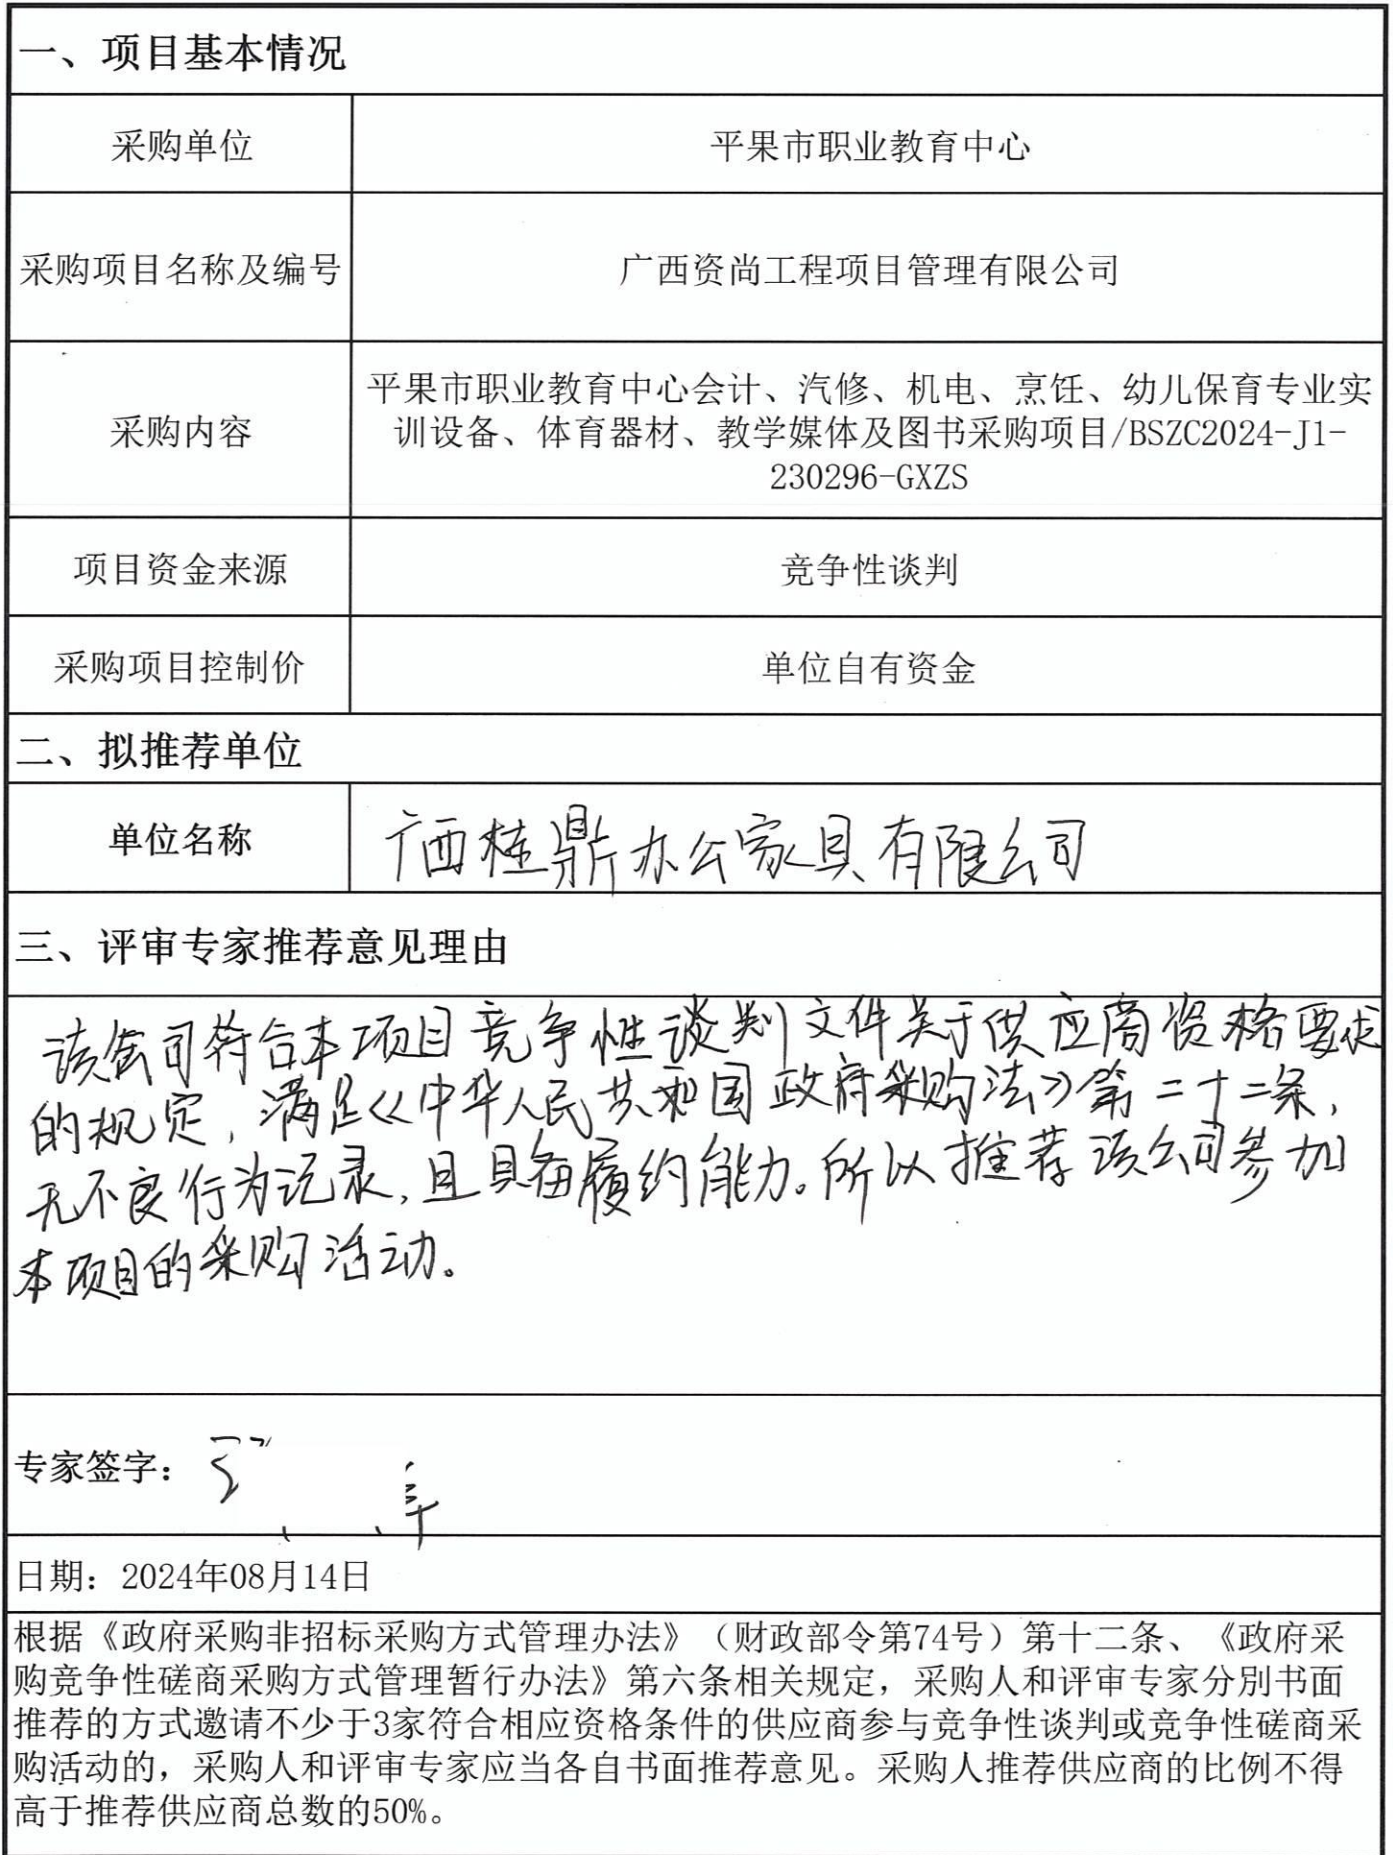 一、项目基本情况
采购单位 平果市职业教育中心
采购项目名称及编号 广西资尚工程项目管理有限公司
采购内容 平果市职业教育中心会计、汽修、机电、烹饪、幼儿保育专业实
训设备、体育器材、教学媒体及图书采购项目/BSZC2024-J1-
230296-GXZS
项目资金来源 竞争性谈判
采购项目控制价 单位自有资金
二、拟推荐单位
单位名称 广西桂鼎办公家具有限公司
三、评审专家推荐意见理由
该公司符合本项目竞争性谈判文件关于供应商资格要求
的规定,满足《中华人民共和国政府采购法》第二十二条,
无不良行为记录,且具备履约能力。所以推荐该公司参加
本项目的采购活动。
专家签字:
日期:2024年08月14日
根据《政府采购非招标采购方式管理办法》(财政部令第74号)第十二条、《政府采
购竞争性磋商采购方式管理暂行办法》第六条相关规定,采购人和评审专家分别书面
推荐的方式邀请不少于3家符合相应资格条件的供应商参与竞争性谈判或竞争性磋商采
购活动的,采购人和评审专家应当各自书面推荐意见。采购人推荐供应商的比例不得
高于推荐供应商总数的50%。